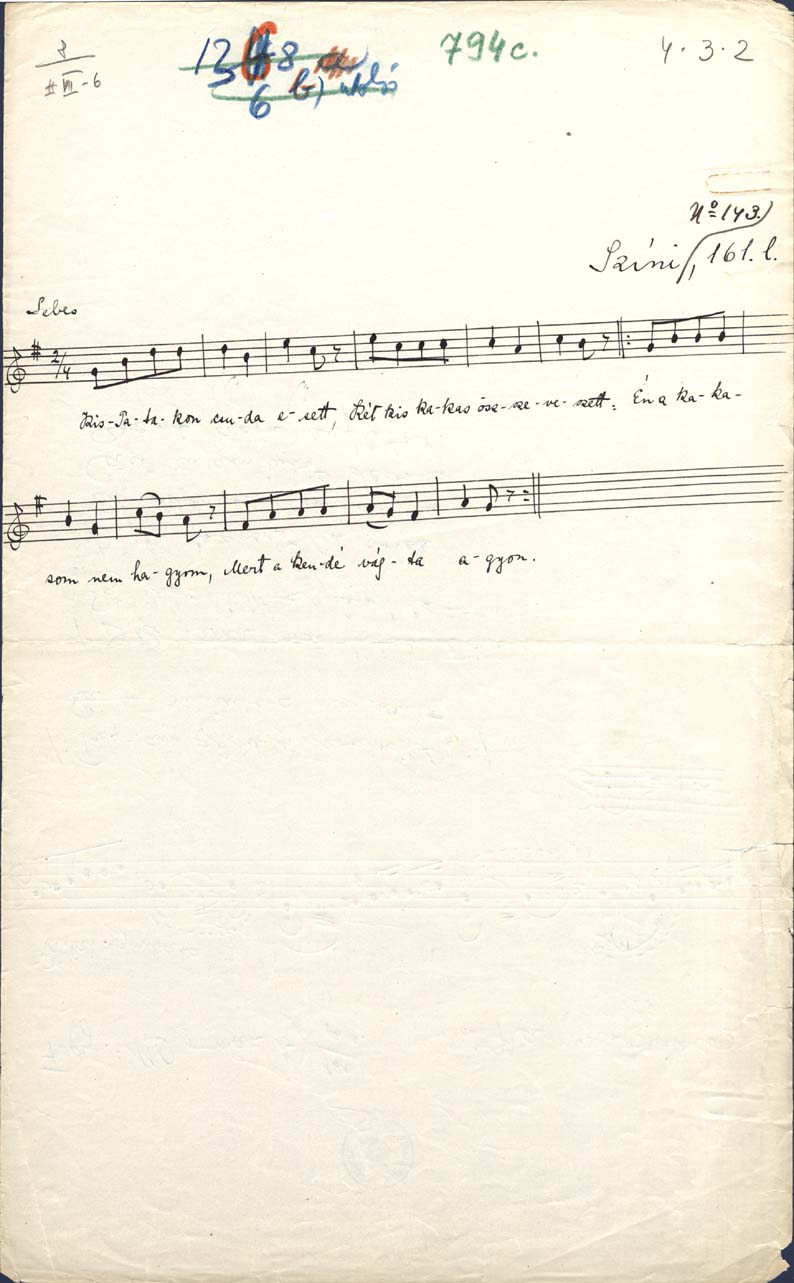 8
II VII - 6
12 8
6 b) utolsó
794c.
4 · 3 · 2
Nº 143.)
Színi, 161. l.
Sebes
2/4
Kis-Pa-ta-kon csu-da e-sett, Két kis ka-kas ösz-sze-ve-szett: Én a ka-ka-
som nem ha-gyom, Mert a ken-dé vág-ta a-gyon.